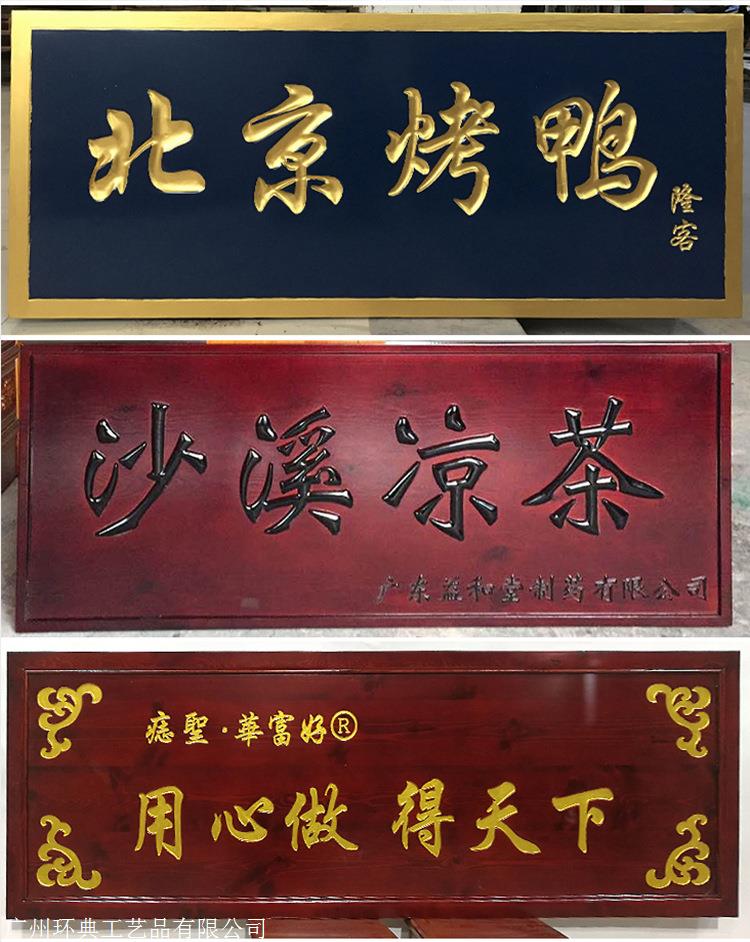 北京烤鸭
隆客
沙溪凉茶
广东益和堂制药有限公司
痣聖·華富好®
用心做 得天下
广州环典工艺品有限公司